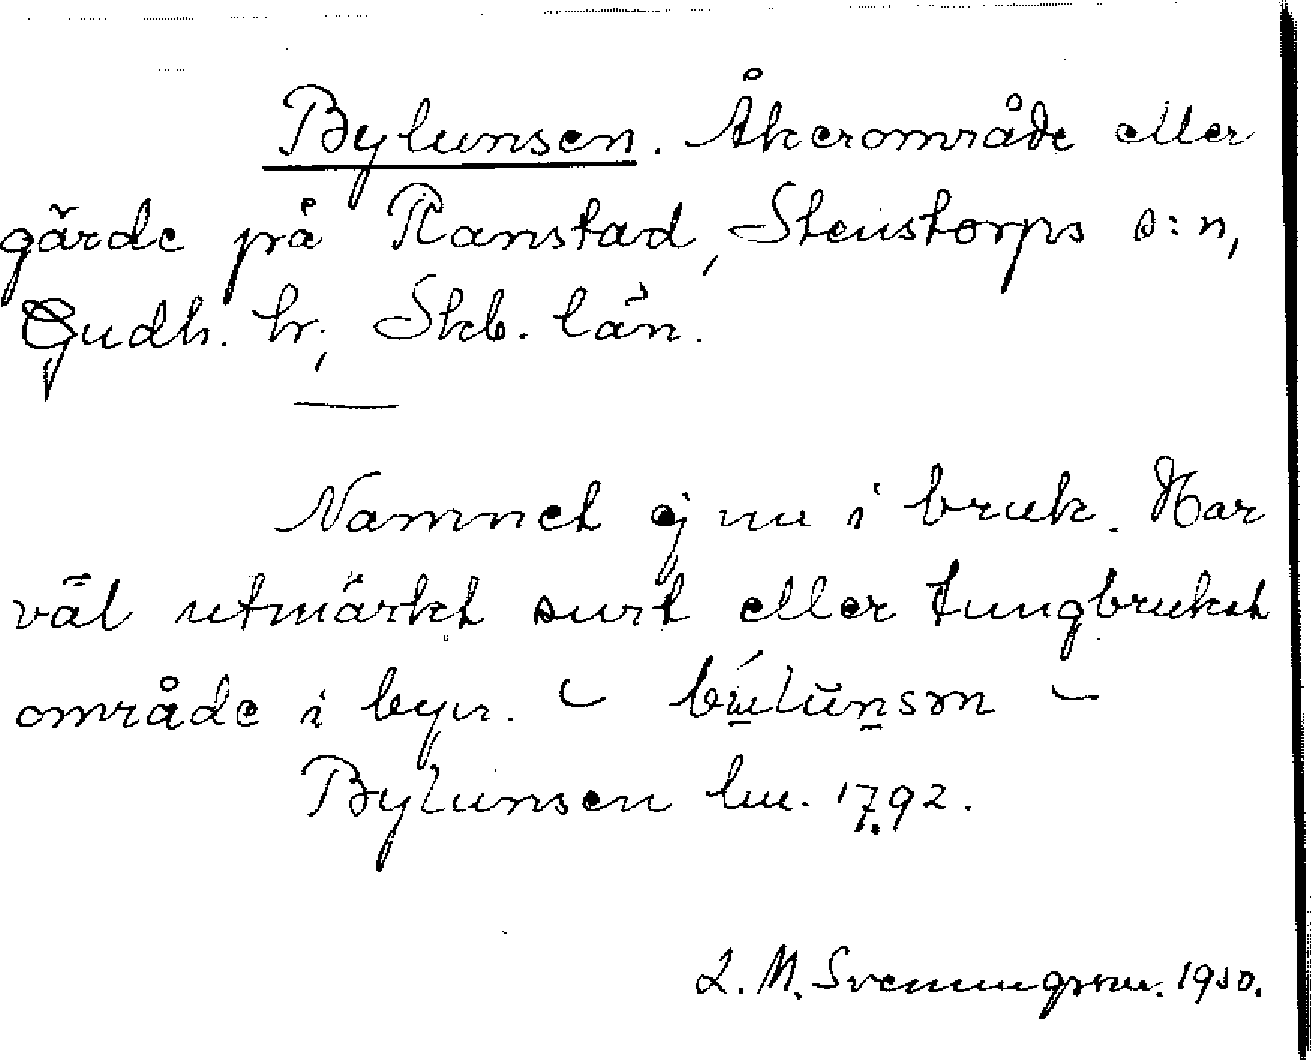 Bylunsen. Åkerområde eller
gärde på Ranstad, Stenstorps s:n,
Gudh. hr, Skb. län.
Namnet ej nu i bruk. Har
väl utmärkt surt eller tungbrukat
område i byn. –
Bylunsen lm. 1792.
L. M. Svenungsson. 1930.